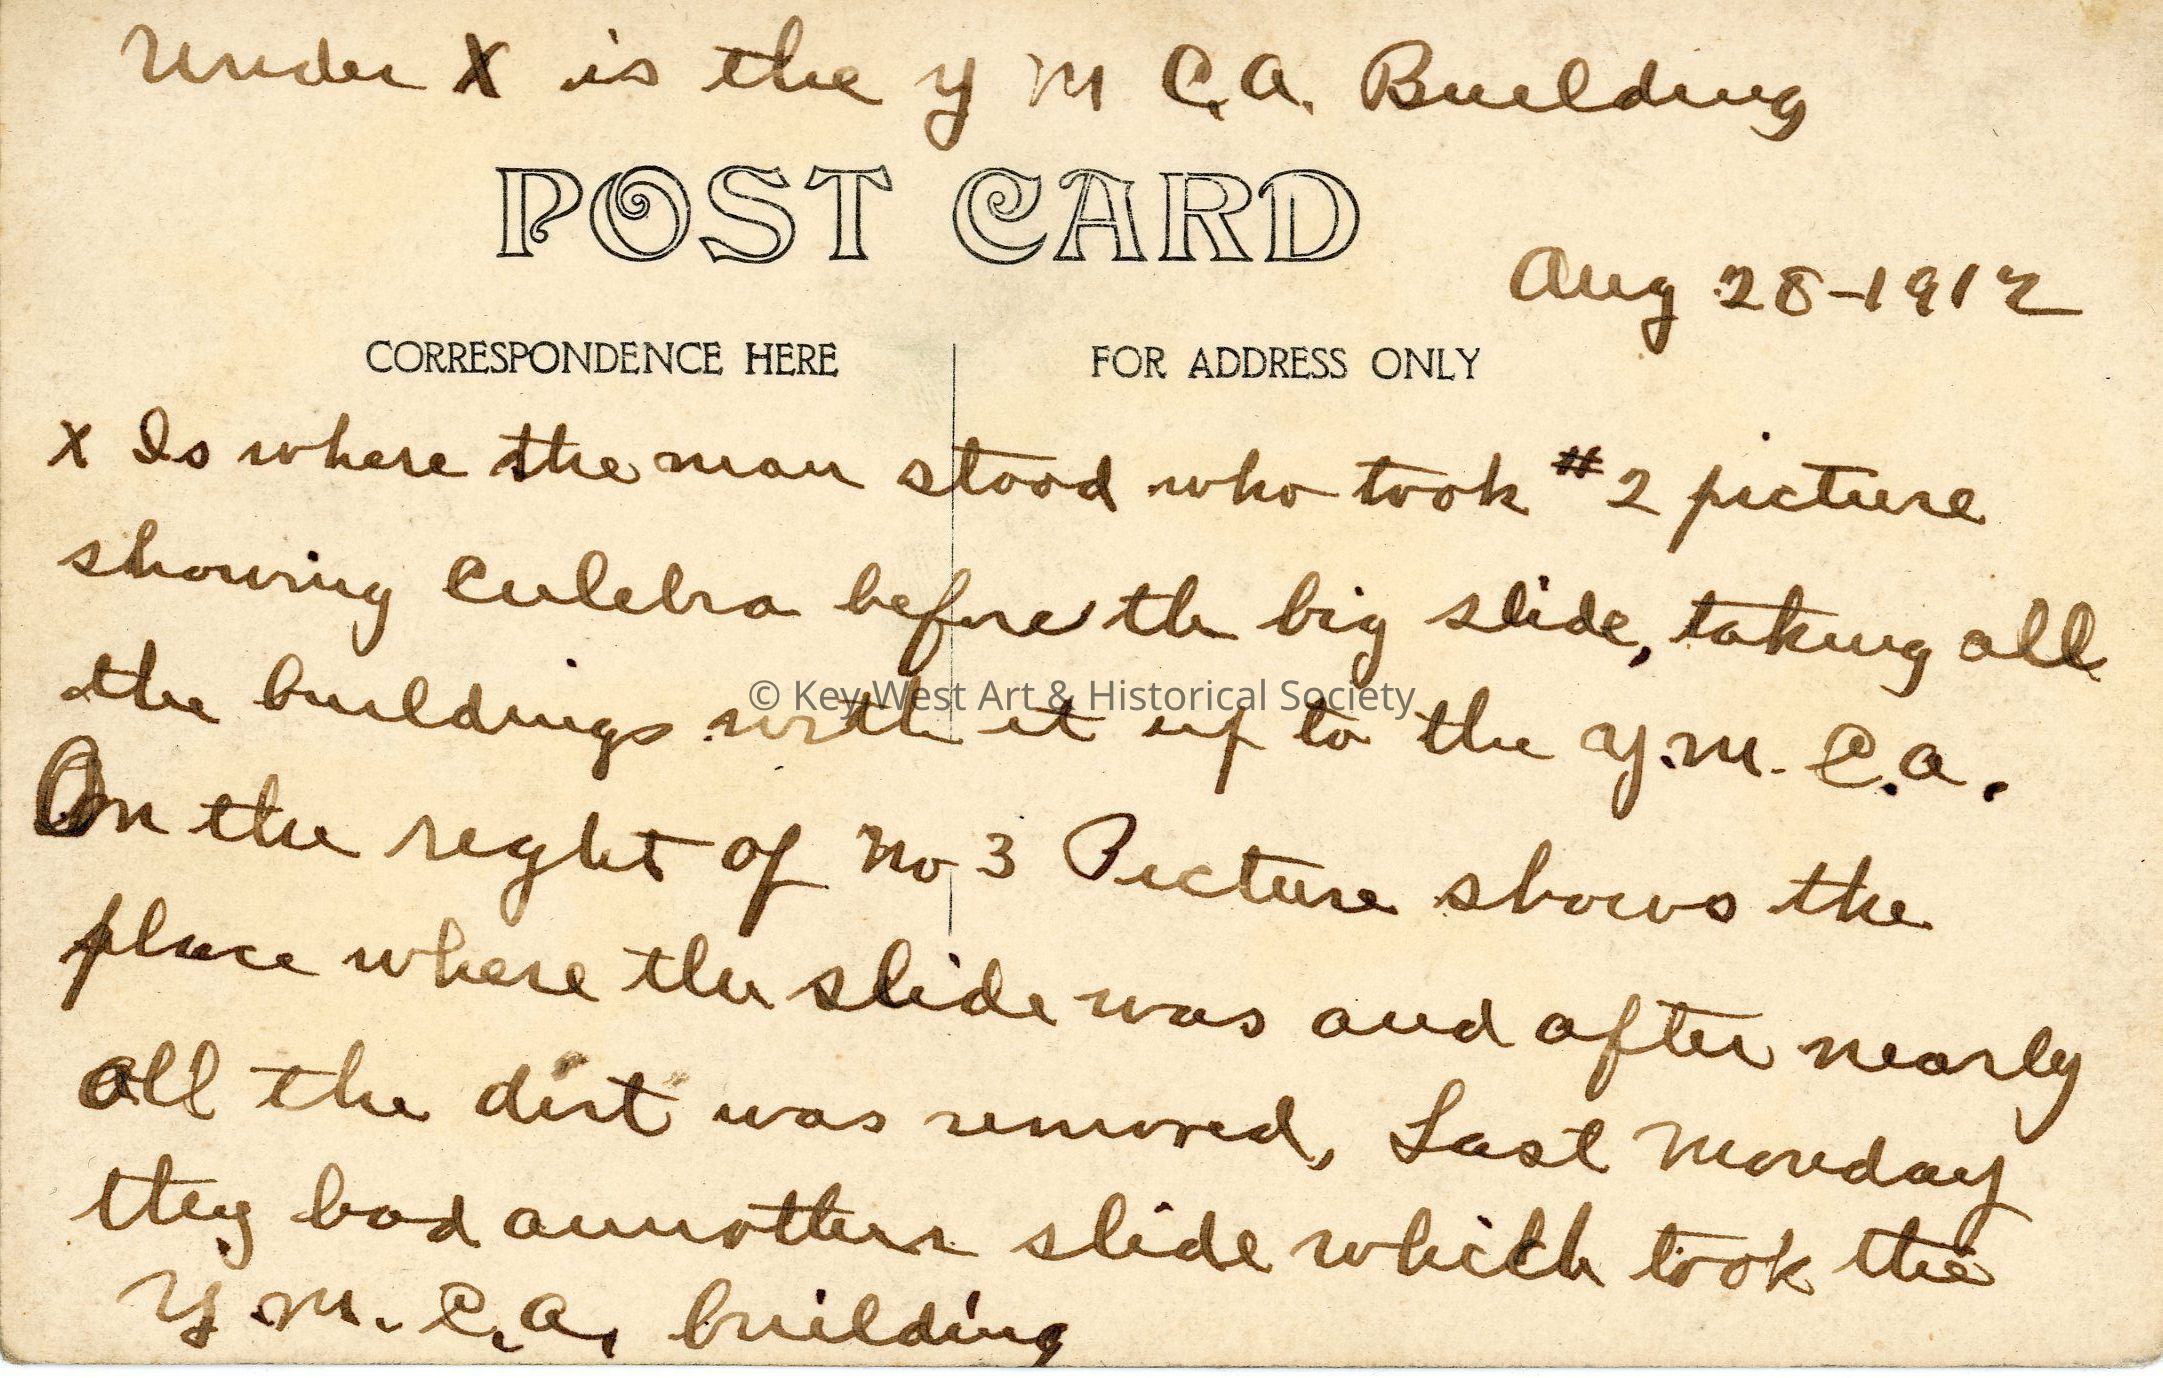 Under X is the Y M C.A. Building
POST CARD
Aug 28-1912
CORRESPONDENCE HERE
FOR ADDRESS ONLY
x Is where the man stood who took #2 picture
showing Culebra before the big slide, taking all
the buildings with it up to the Y.M.C.A.
© Key West Art & Historical Society
On the right of No 3 Picture shows the
place where the slide was and after nearly
all the dirt was removed, Last Monday
they had annother slide which took the
Y.M.C.A. building